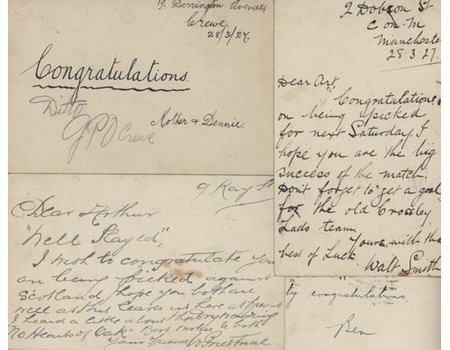 19. Derrington Avenue
Crewe.
28/3/27.
Congratulations.
Ditto
GPO Crewe
Mother & Dennie.
2 Dobson St
C on M
Manchester
28.3.27.
Dear Art.
Congratulations
on being picked
for next Saturday. I
hope you are the big
success of the match.
Don't forget to get a goal
for the old Crossley
Lads team.
Yours with the
best of Luck
Walt Smith
9 Kay St
Dear Arthur
"Well Played",
I wish to congratulate you
on being picked against
Scotland, hope you both are
well as this leaves us here at present
I heard a little about
"No Hearts of Oak" to both
Your friend
ty congratulations.
Ben